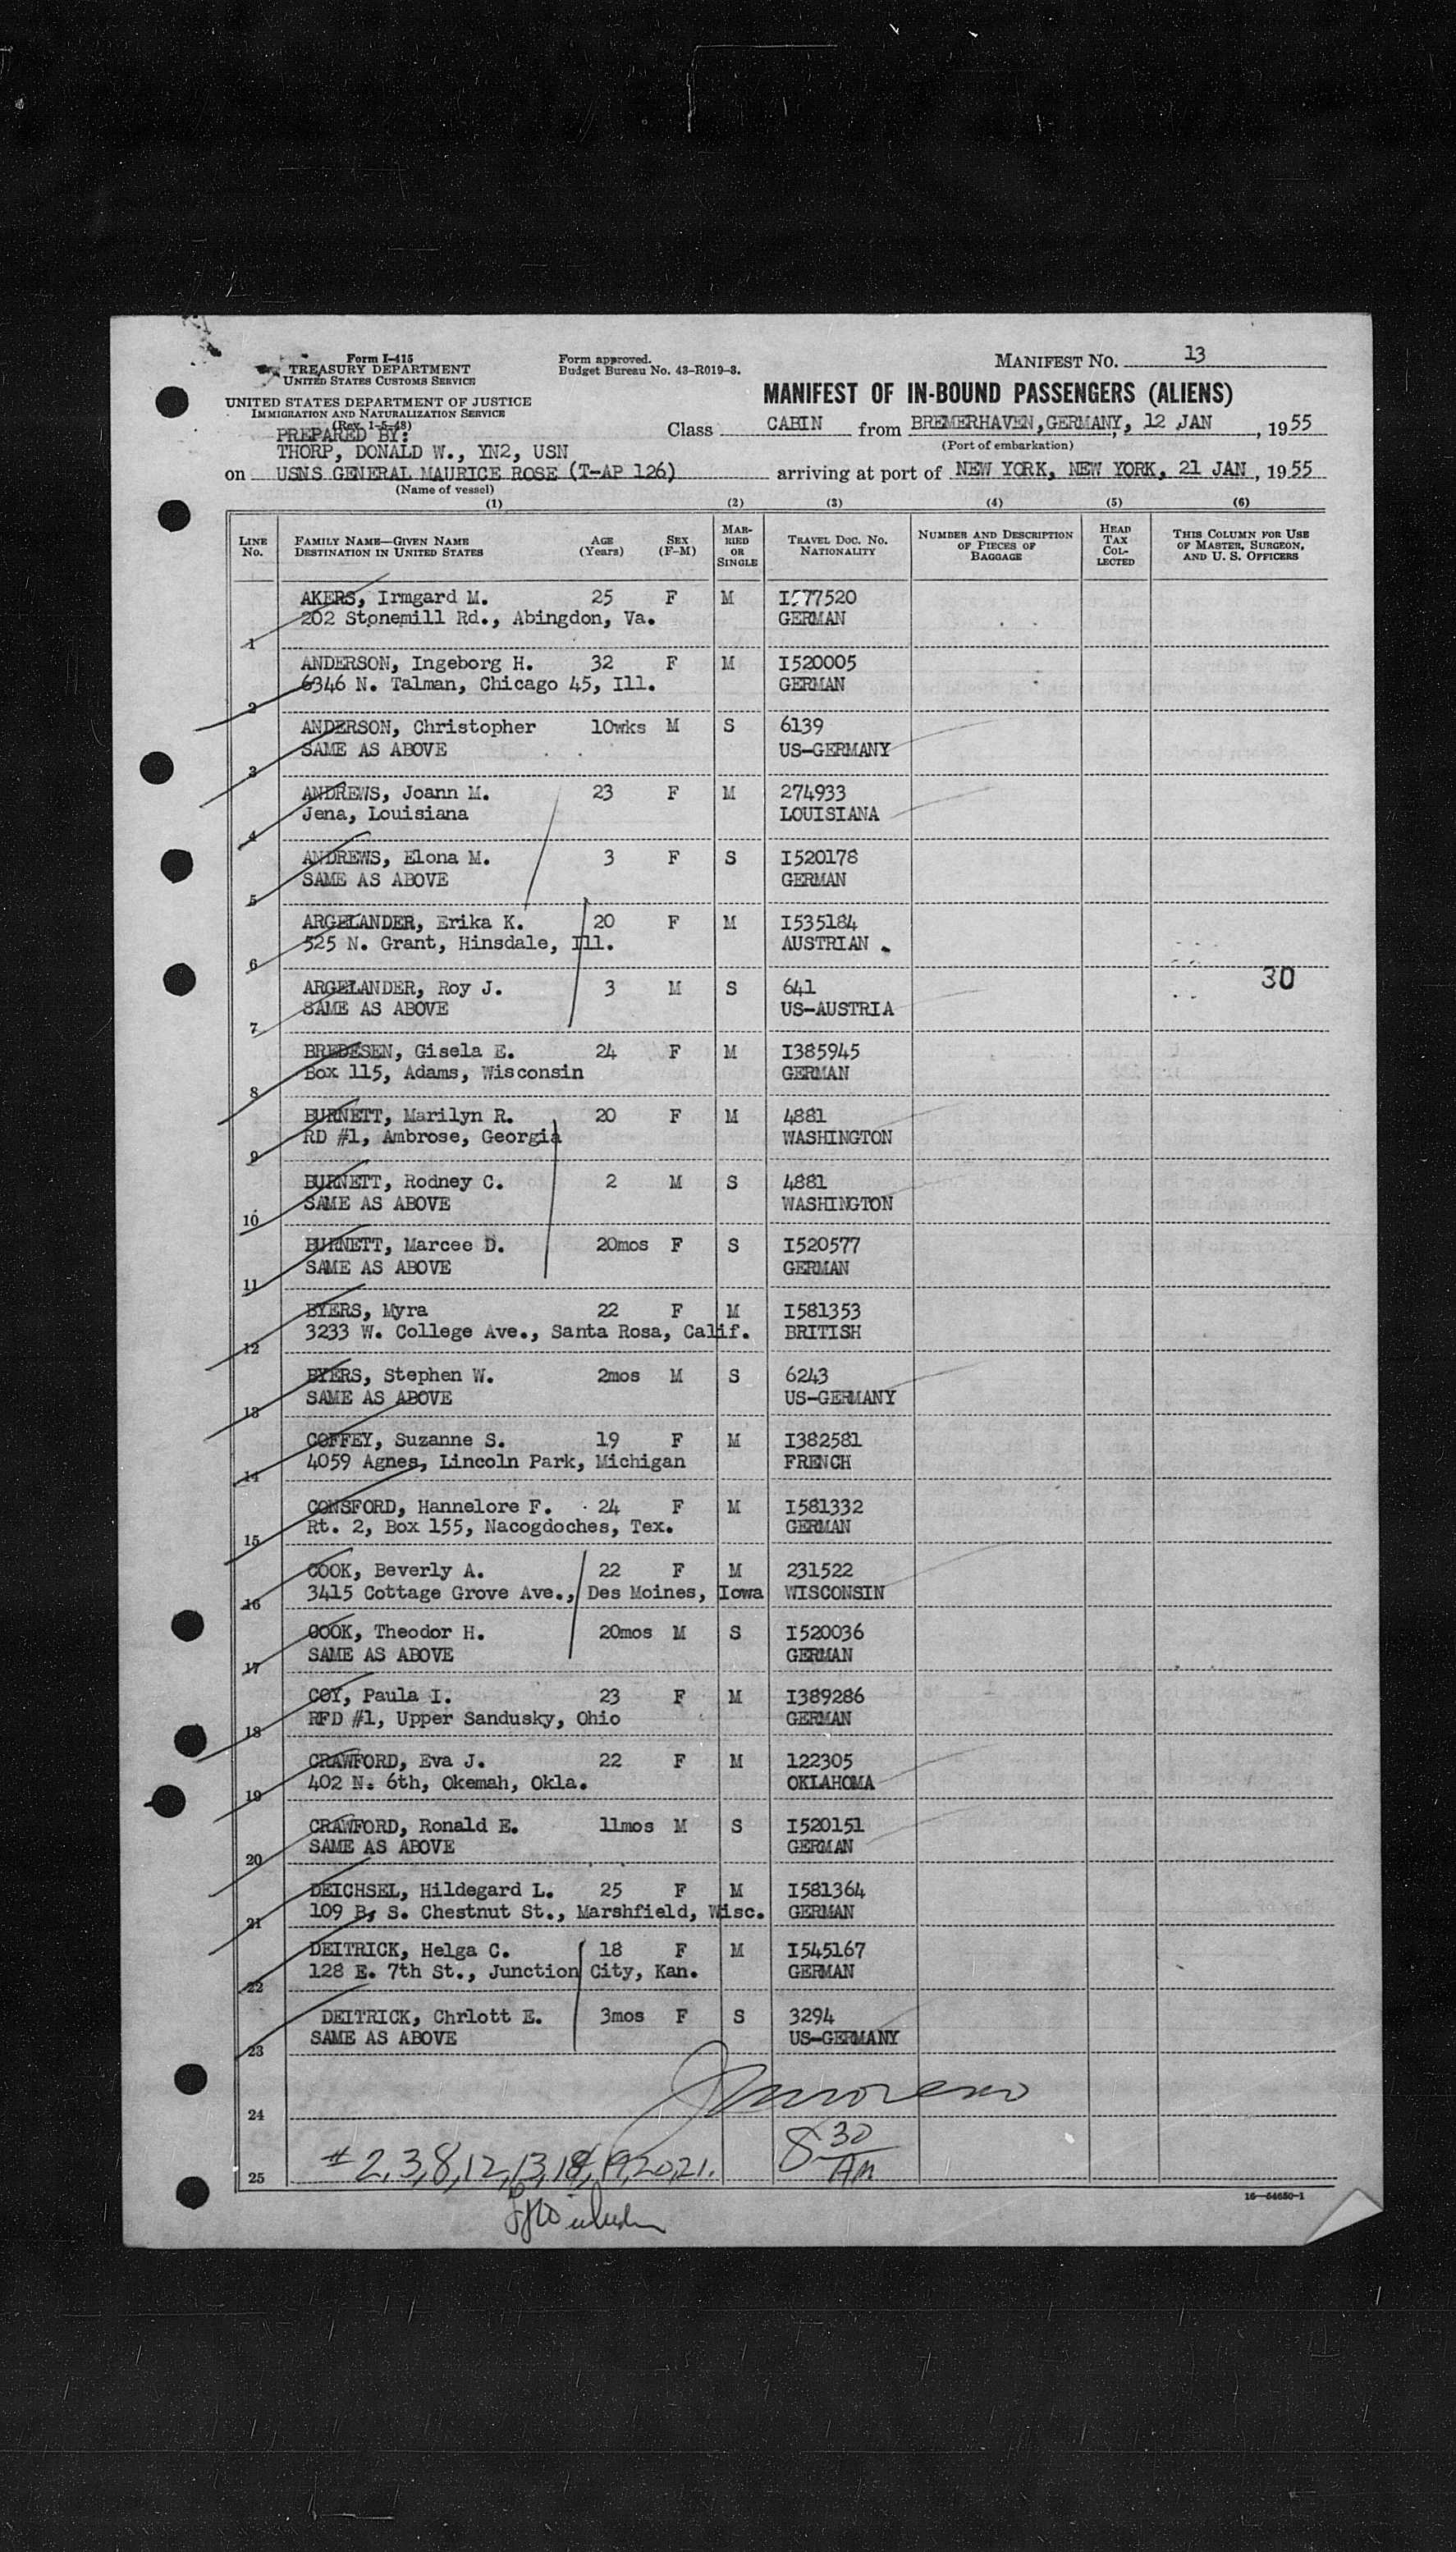 Form I-415
TREASURY DEPARTMENT
UNITED STATES CUSTOMS SERVICE
UNITED STATES DEPARTMENT OF JUSTICE
IMMIGRATION AND NATURALIZATION SERVICE
(Rev. 1-5-48)
Form approved.
Budget Bureau No. 43-R019-3.
MANIFEST NO. 13
MANIFEST OF IN-BOUND PASSENGERS (ALIENS)
PREPARED BY:
THORP, DONALD W., YN2, USN
Class CABIN from BREMERHAVEN, GERMANY, 12 JAN, 1955
(Port of embarkation)
on USNS GENERAL MAURICE ROSE (T-AP 126) arriving at port of NEW YORK, NEW YORK, 21 JAN, 1955
(Name of vessel)
(1) (2) (3) (4) (5) (6)
LINE No. FAMILY NAME—GIVEN NAME DESTINATION IN UNITED STATES AGE (Years) SEX (F-M) MARRIED OR SINGLE TRAVEL DOC. NO. NATIONALITY NUMBER AND DESCRIPTION OF PIECES OF BAGGAGE HEAD TAX COLLECTED THIS COLUMN FOR USE OF MASTER, SURGEON, AND U. S. OFFICERS
AKERS, Irmgard M. 25 F M I577520
1 202 Stonemill Rd., Abingdon, Va. GERMAN
ANDERSON, Ingeborg H. 32 F M I520005
2 6346 N. Talman, Chicago 45, Ill. GERMAN
ANDERSON, Christopher 10wks M S 6139
3 SAME AS ABOVE US-GERMANY
ANDREWS, Joann M. 23 F M 274933
4 Jena, Louisiana LOUISIANA
ANDREWS, Elona M. 3 F S I520178
5 SAME AS ABOVE GERMAN
ARGELANDER, Erika K. 20 F M I535184
6 525 N. Grant, Hinsdale, Ill. AUSTRIAN
ARGELANDER, Roy J. 3 M S 641 30
7 SAME AS ABOVE US-AUSTRIA
BREDESEN, Gisela E. 24 F M I385945
8 Box 115, Adams, Wisconsin GERMAN
BURNETT, Marilyn R. 20 F M 4881
9 RD #1, Ambrose, Georgia WASHINGTON
BURNETT, Rodney C. 2 M S 4881
10 SAME AS ABOVE WASHINGTON
BURNETT, Marcee D. 20mos F S I520577
11 SAME AS ABOVE GERMAN
BYERS, Myra 22 F M I581353
12 3233 W. College Ave., Santa Rosa, Calif. BRITISH
BYERS, Stephen W. 2mos M S 6243
13 SAME AS ABOVE US-GERMANY
COFFEY, Suzanne S. 19 F M I382581
14 4059 Agnes, Lincoln Park, Michigan FRENCH
CONSFORD, Hannelore F. 24 F M I581332
15 Rt. 2, Box 155, Nacogdoches, Tex. GERMAN
COOK, Beverly A. 22 F M 231522
16 3415 Cottage Grove Ave., Des Moines, Iowa WISCONSIN
COOK, Theodor H. 20mos M S I520036
17 SAME AS ABOVE GERMAN
COY, Paula I. 23 F M I389286
18 RFD #1, Upper Sandusky, Ohio GERMAN
CRAWFORD, Eva J. 22 F M 122305
19 402 N. 6th, Okemah, Okla. OKLAHOMA
CRAWFORD, Ronald E. 11mos M S I520151
20 SAME AS ABOVE GERMAN
DEICHSEL, Hildegard L. 25 F M I581364
21 109 B, S. Chestnut St., Marshfield, Wisc. GERMAN
DEITRICK, Helga C. 18 F M I545167
22 128 E. 7th St., Junction City, Kan. GERMAN
DEITRICK, Chrlott E. 3mos F S 3294
23 SAME AS ABOVE US-GERMANY
24
25 # 2,3,8,12,13,18,19,20,21. 8 30 AM
16—54650-1